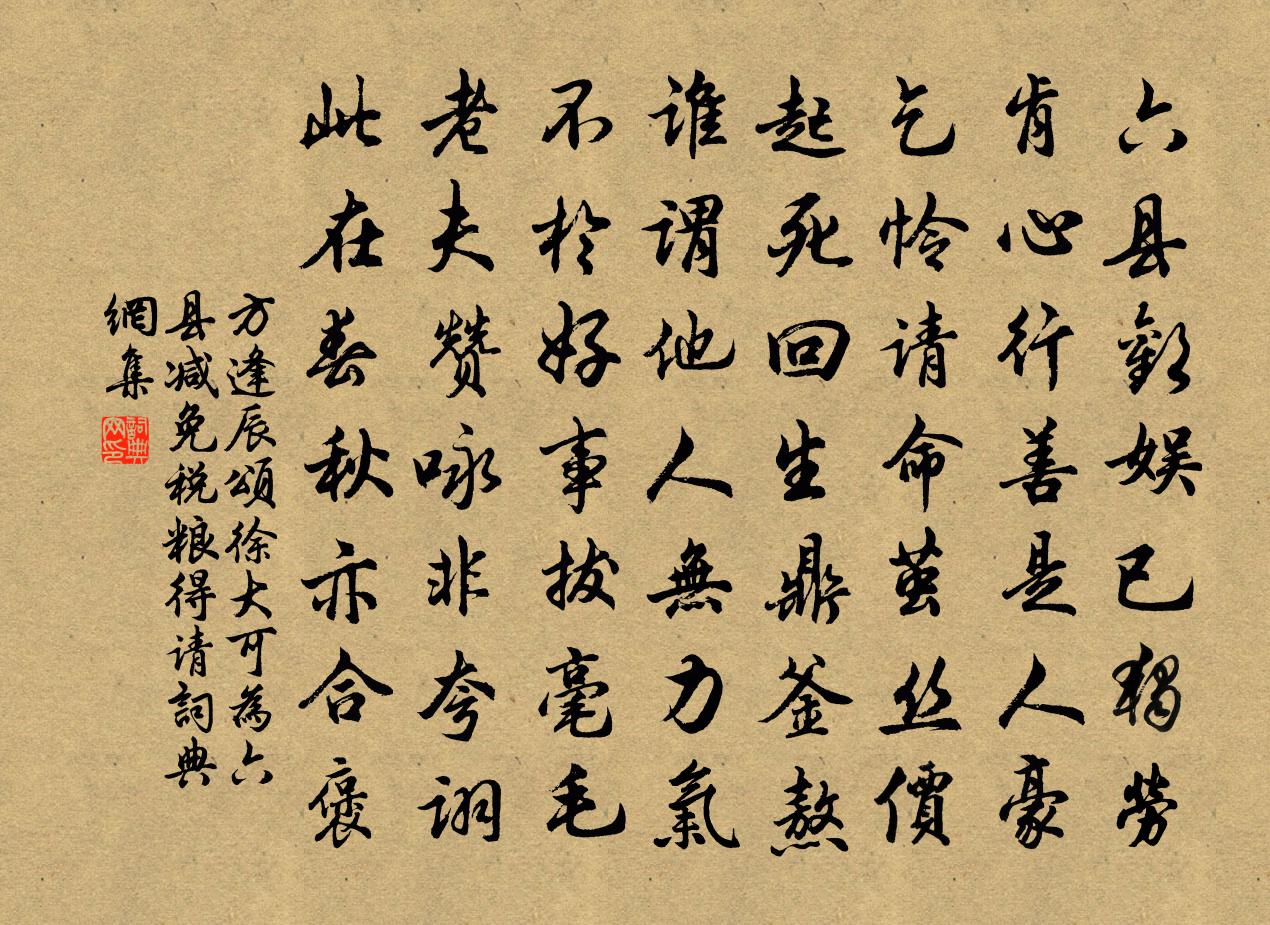 六县歡娱已獨勞
肯心行善是人豪
乞怜请命茧丝價
起死回生鼎釜熬
谁谓他人無力氣
不於好事拔毫毛
老夫赞咏非夸诩
此在春秋亦合褒
方逢辰頌徐大可為六
县减免税粮得请詞典
網集
詞典
网印